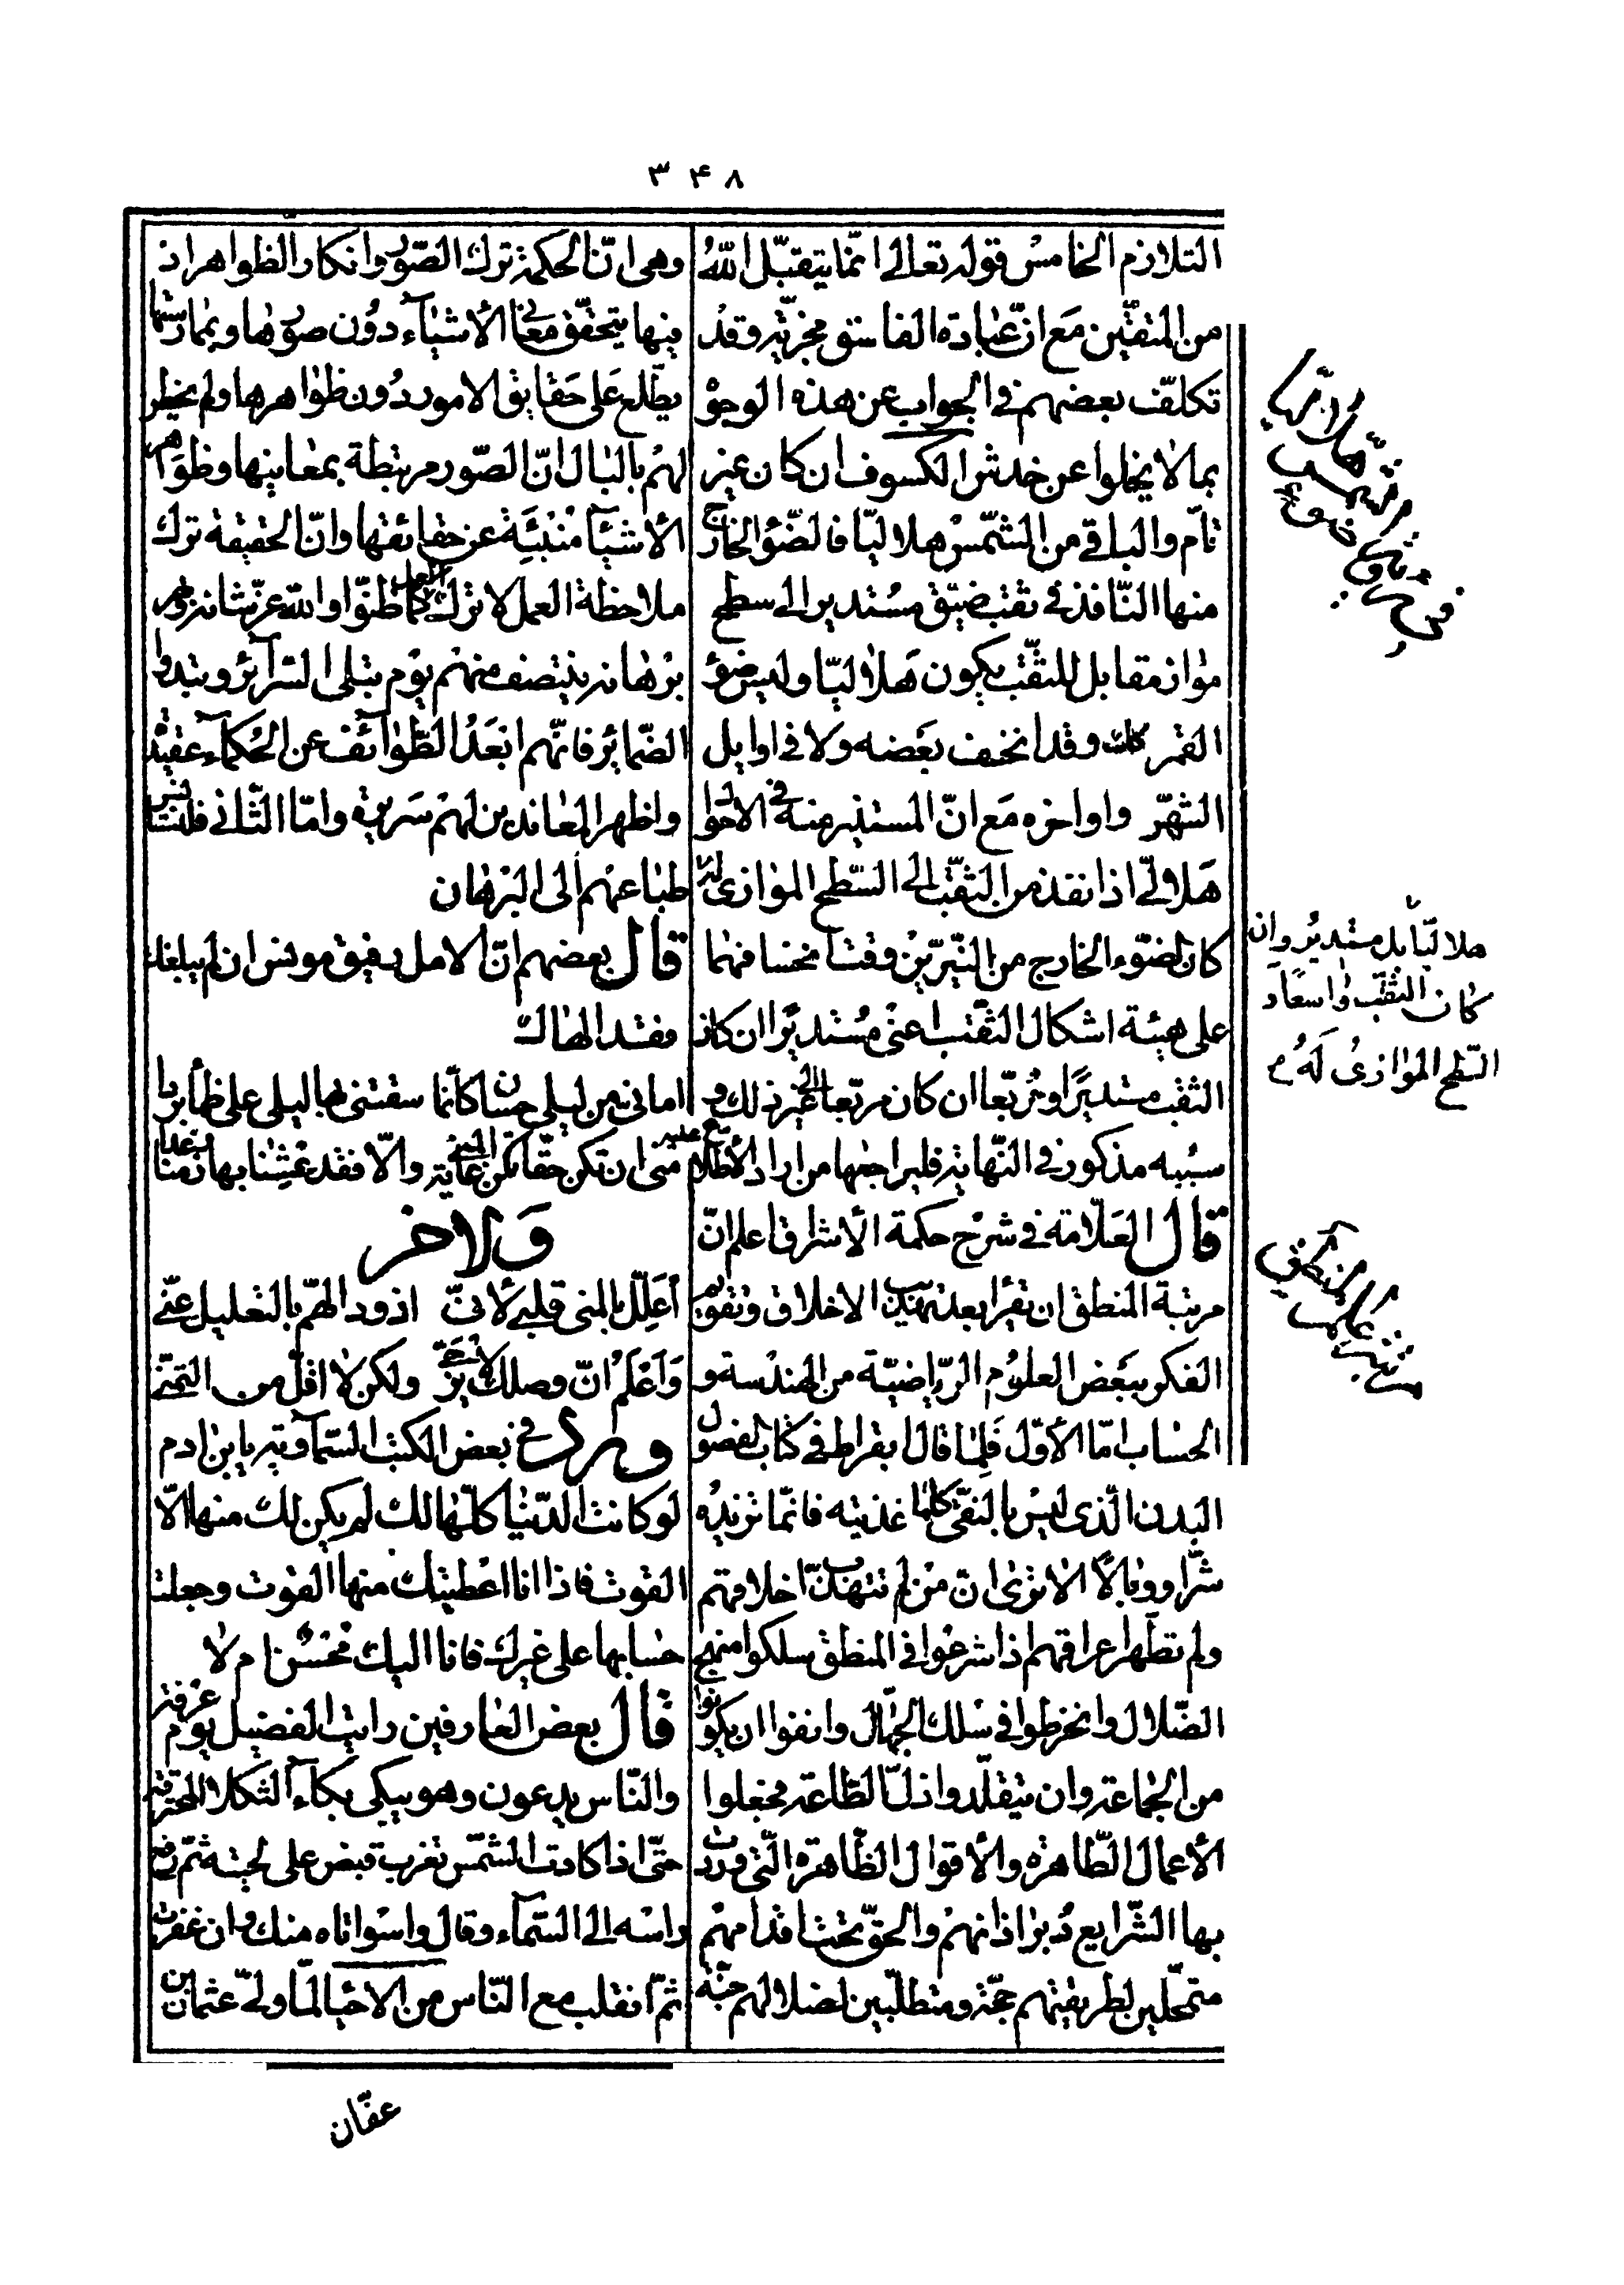 ۳۴۸
التلازم الخامس قوله تعالى انّما يتقبّل اللّه
من المتقين مع انّ عبادة الفاسق مجزية وقد
تكلّف بعضهم فى الجواب عن هذه الوجوه
بما لا يخلوا عن خدش الكسوف ان كان غير
تامّ والباقى من الشّمس هلاليّا فالضّوء الخارج
منها النّافذ فى ثقب ضيّق مستدير الى سطح
مواز مقابل للثقب يكون هلاليّا وليس ضوء
القمر كك وقد انخسف بعضه ولا فى اوايل
الشهر واواخره مع انّ المستنير منه فى الاحوال
هلالى اذا نفذ من الثقب الى السّطح الموازى له
كان الضوء الخارج من النّيّرين وقت انخسافهما
على هيئة اشكال الثقب اعنى مستديرا ان كان
الثقب مستديرا ومربّعا ان كان مربّعا الى غير ذلك و
سببه مذكور فى النّهاية فليراجعها من اراد الاطلاع عليه
قال العلّامة فى شرح حكمة الاشراق اعلم انّ
مرتبة المنطق ان تقرأ بعد تهذيب الاخلاق وتقويم
الفكر ببعض العلوم الرّياضيّة من الهندسة و
الحساب امّا الأوّل فلما قال ابقراط فى كتاب الفصول
البدن الّذى ليس بالنقىّ كلما غذيته فانّما تزيده
شرّا ووبالا الا ترى ان من لم تتهذّب اخلاقهم
ولم تطهر اعراقهم اذا شرعوا فى المنطق سلكوا منهج
الضّلال وانخرطوا فى سلك الجهّال وانفوا ان يكونوا
من الجماعة وان يتقلّدوا ذلّ الطّاعة فجعلوا
الأعمال الطّاهرة والأقوال الظّاهرة الّتى وردت
بها الشّرايع دبر اذانهم والحقّ تحت اقدامهم
متمحّلين لطريقتهم حجّة ومتطلّبين لضلالهم
وهى انّ الحكمة ترك الصّور وانكار الظواهر اذ
فيها يتحقّق معانى الأشياء دون صورها وبممارستها
يطّلع على حقايق الامور دون ظواهرها ولم يخطر
لهم بالبال انّ الصّور مرتبطة بمعانيها وظواهر
الأشيآء منبئة عن حقائقها وانّ الحقيقة ترك
ملاحظة العمل لا ترك العمل كما ظنّوا واللّه عزّ شانه وبهر
برهانه ينتصف منهم يوم تبلى السّرآئر وتبدوا
الضّمائر فانّهم ابعد الطّوآئف عن الحكمآء عقيدة
واظهر المعاندين لهم سريرة وامّا الثّانى فلتستأنس
طباعهم الى البرهان
قال بعضهم انّ الامل رفيق مونس ان لم يبلغك
فقد الهاك
امانىّ من ليلى حسان كانّما سقتنى بها ليلى على ظمأ بردا
منى ان تكن حقّا تكن احسن المنى والّا فقد عشنا بها زمنا رغدا
ولاخر
أعلّل بالمنى قلبى لأنّى اذود الهمّ بالتعليل عنّى
وأعلم انّ وصلك لا يرجّى ولكن لا اقلّ من التمنّى
ورد فى بعض الكتب السّمآوية يا بن ادم
لو كانت الدّنيا كلّها لك لم يكن لك منها الّا
القوت فاذا انا اعطيتك منها القوت وجعلت
حسابها على غيرك فانا اليك محسن ام لا
قال بعض العارفين رايت الفضيل يوم عرفة
والنّاس يدعون وهو يبكى بكآء الثكلى المحترقة
حتّى اذا كادت الشّمس تغرب قبض على لحيته ثم رفع
راسه الى السّمآء وقال واسوأتاه منك وان غفرت
ثمّ انقلب مع النّاس من الاحيا لمّا ولىّ عثمان بن
هلاليّا بل مستدير وان
كان الثقب واسعا و
السّطح الموازى له
عفّان